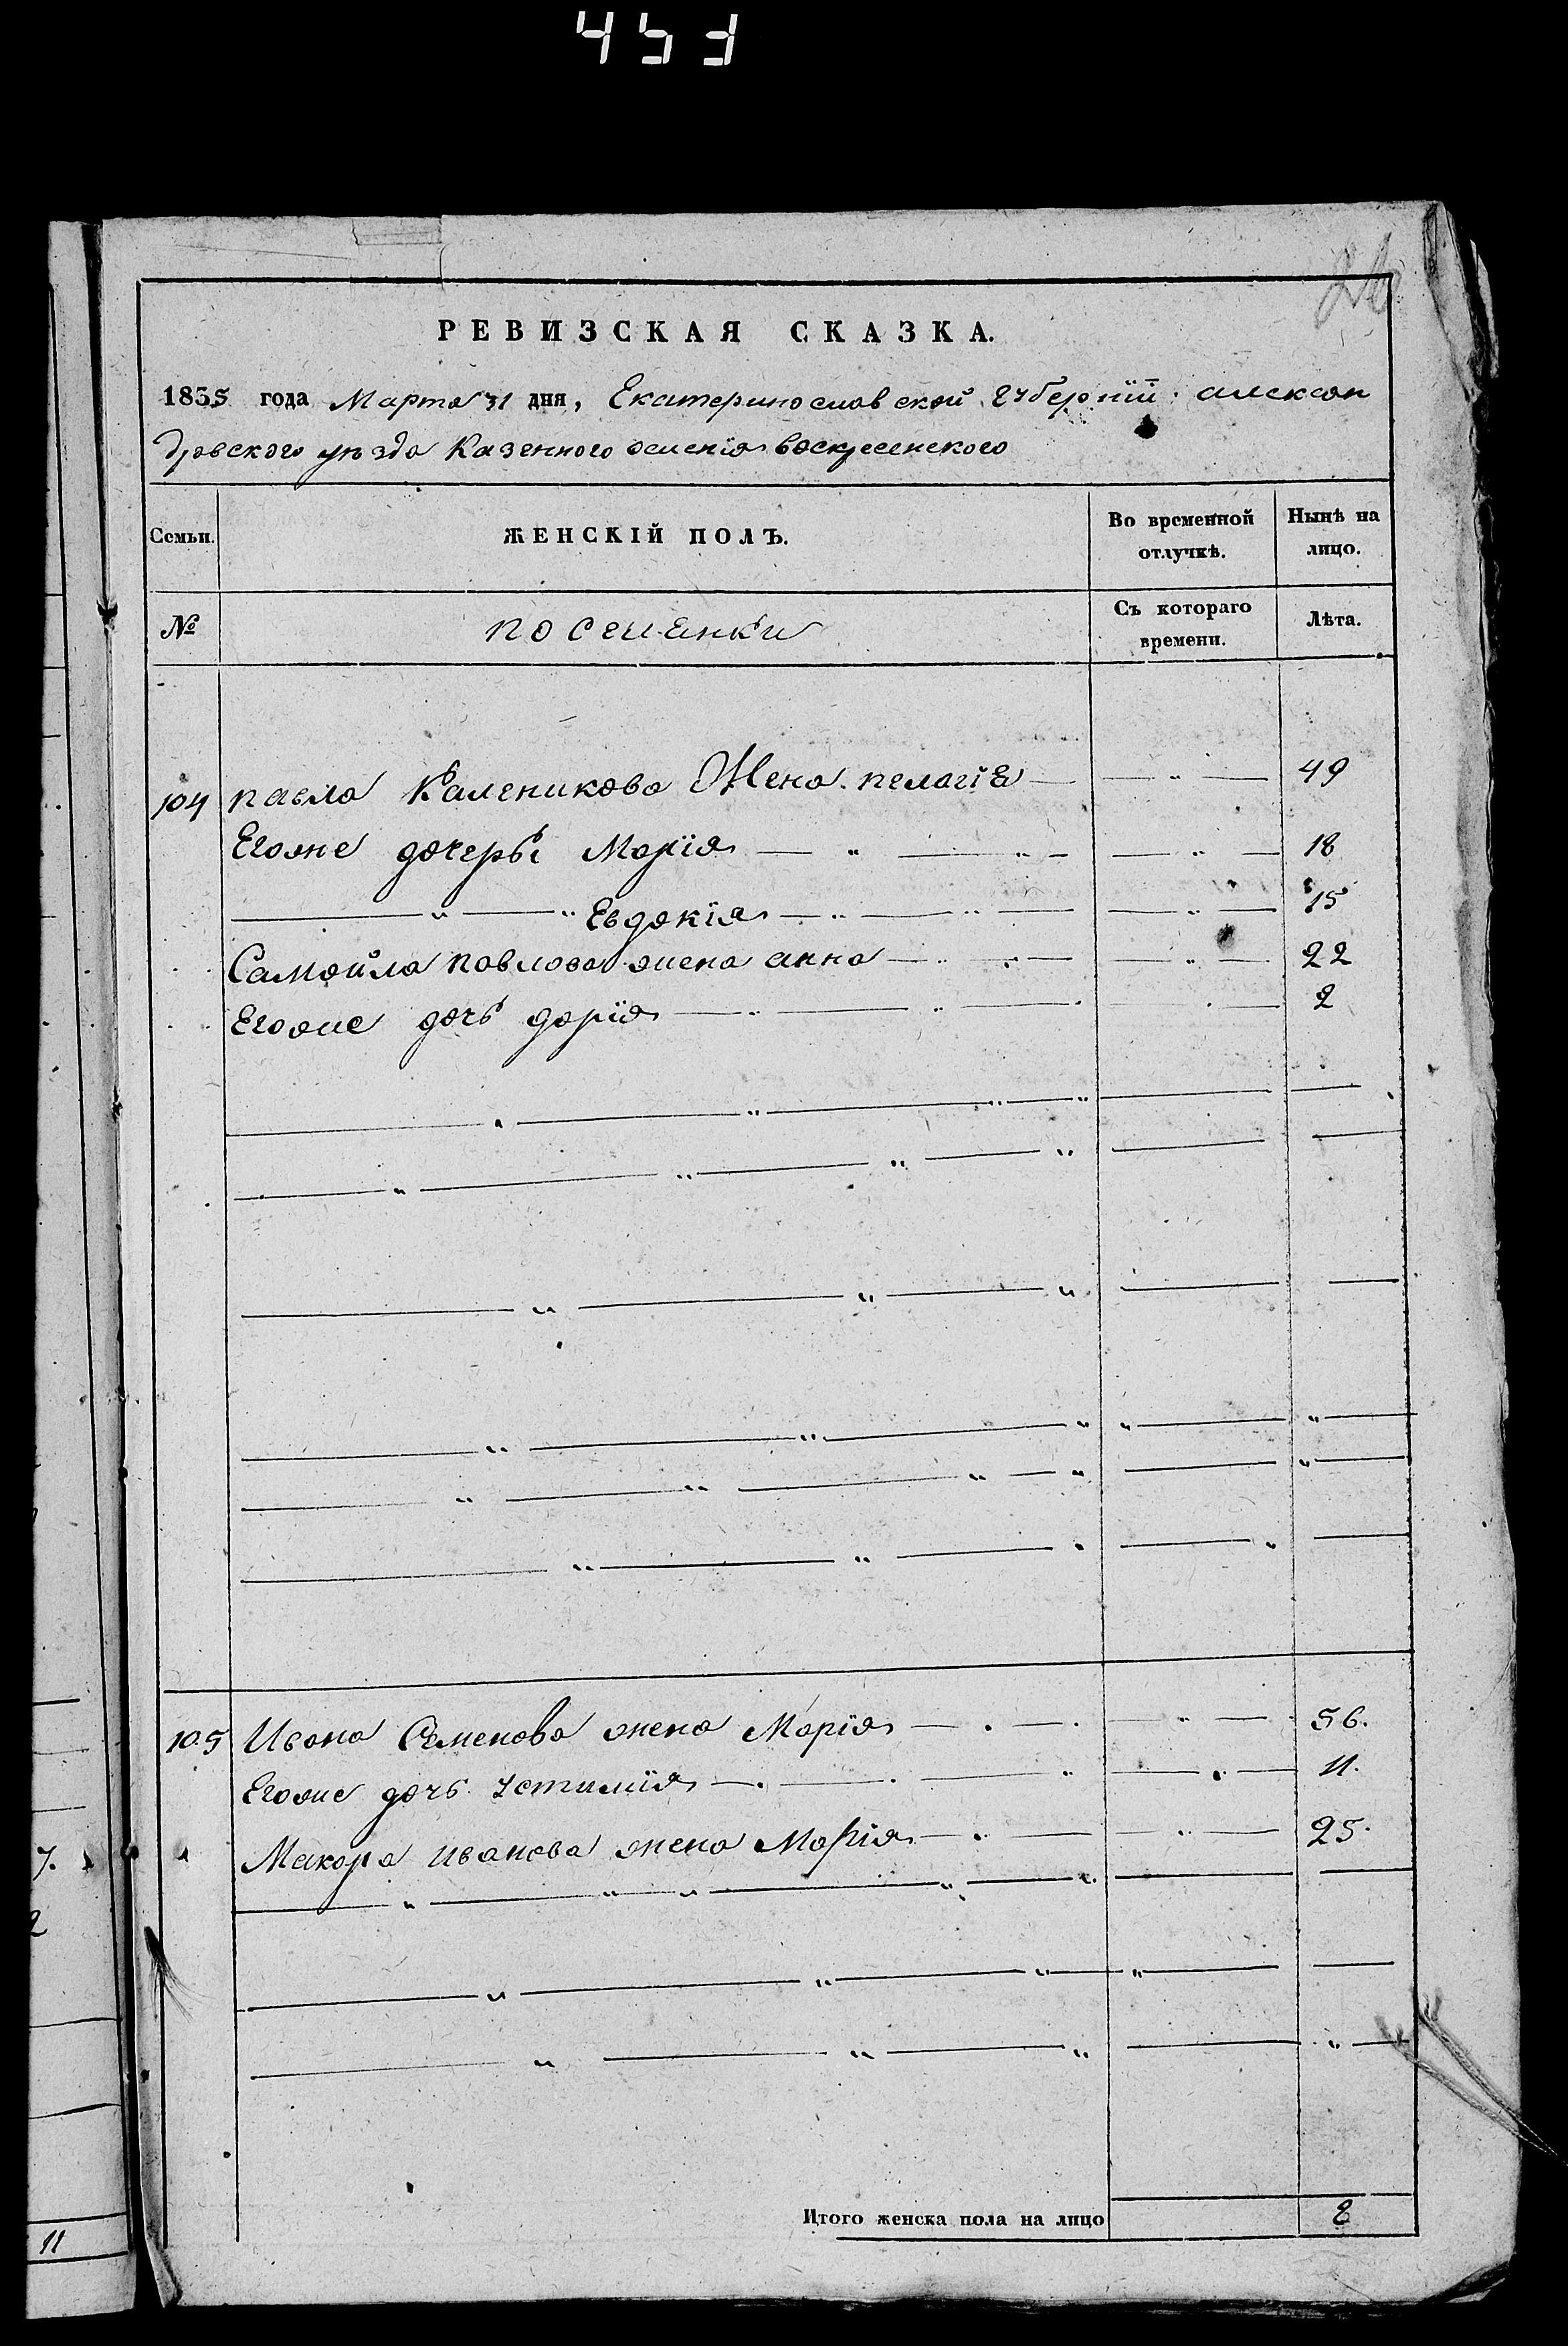 453
РЕВИЗСКАЯ СКАЗКА.
1835 года Марта 31 дня, Екатеринославской губернїй алексан
дровского уѣзда Казенного селенїя воскресенского
Семьи. ЖЕНСКІЙ ПОЛЪ. Во временной отлучкѣ. Нынѣ на лицо.
№ поселенки Съ котораго времени. Лѣта.
104 павла Каленикова Жена пелагіе — — „ — 49
Егоже дочеры Марїя — „ — „ — — „ — 18
— „ — „ Евдокїя — „ — „ — — „ — 15
Самойла павлова жена анна — „ — — „ — 22
Егоже дочь дарїя — „ — „ — — 2
105 Ивана Семенова жена Марїя — . — . — „ — 56.
Егоже дочь Устимїя — . — . — „ — . — 11.
Макара иванова жена Марїя — . — — „ — 25.
Итого женска пола на лицо 8
7.
2
11